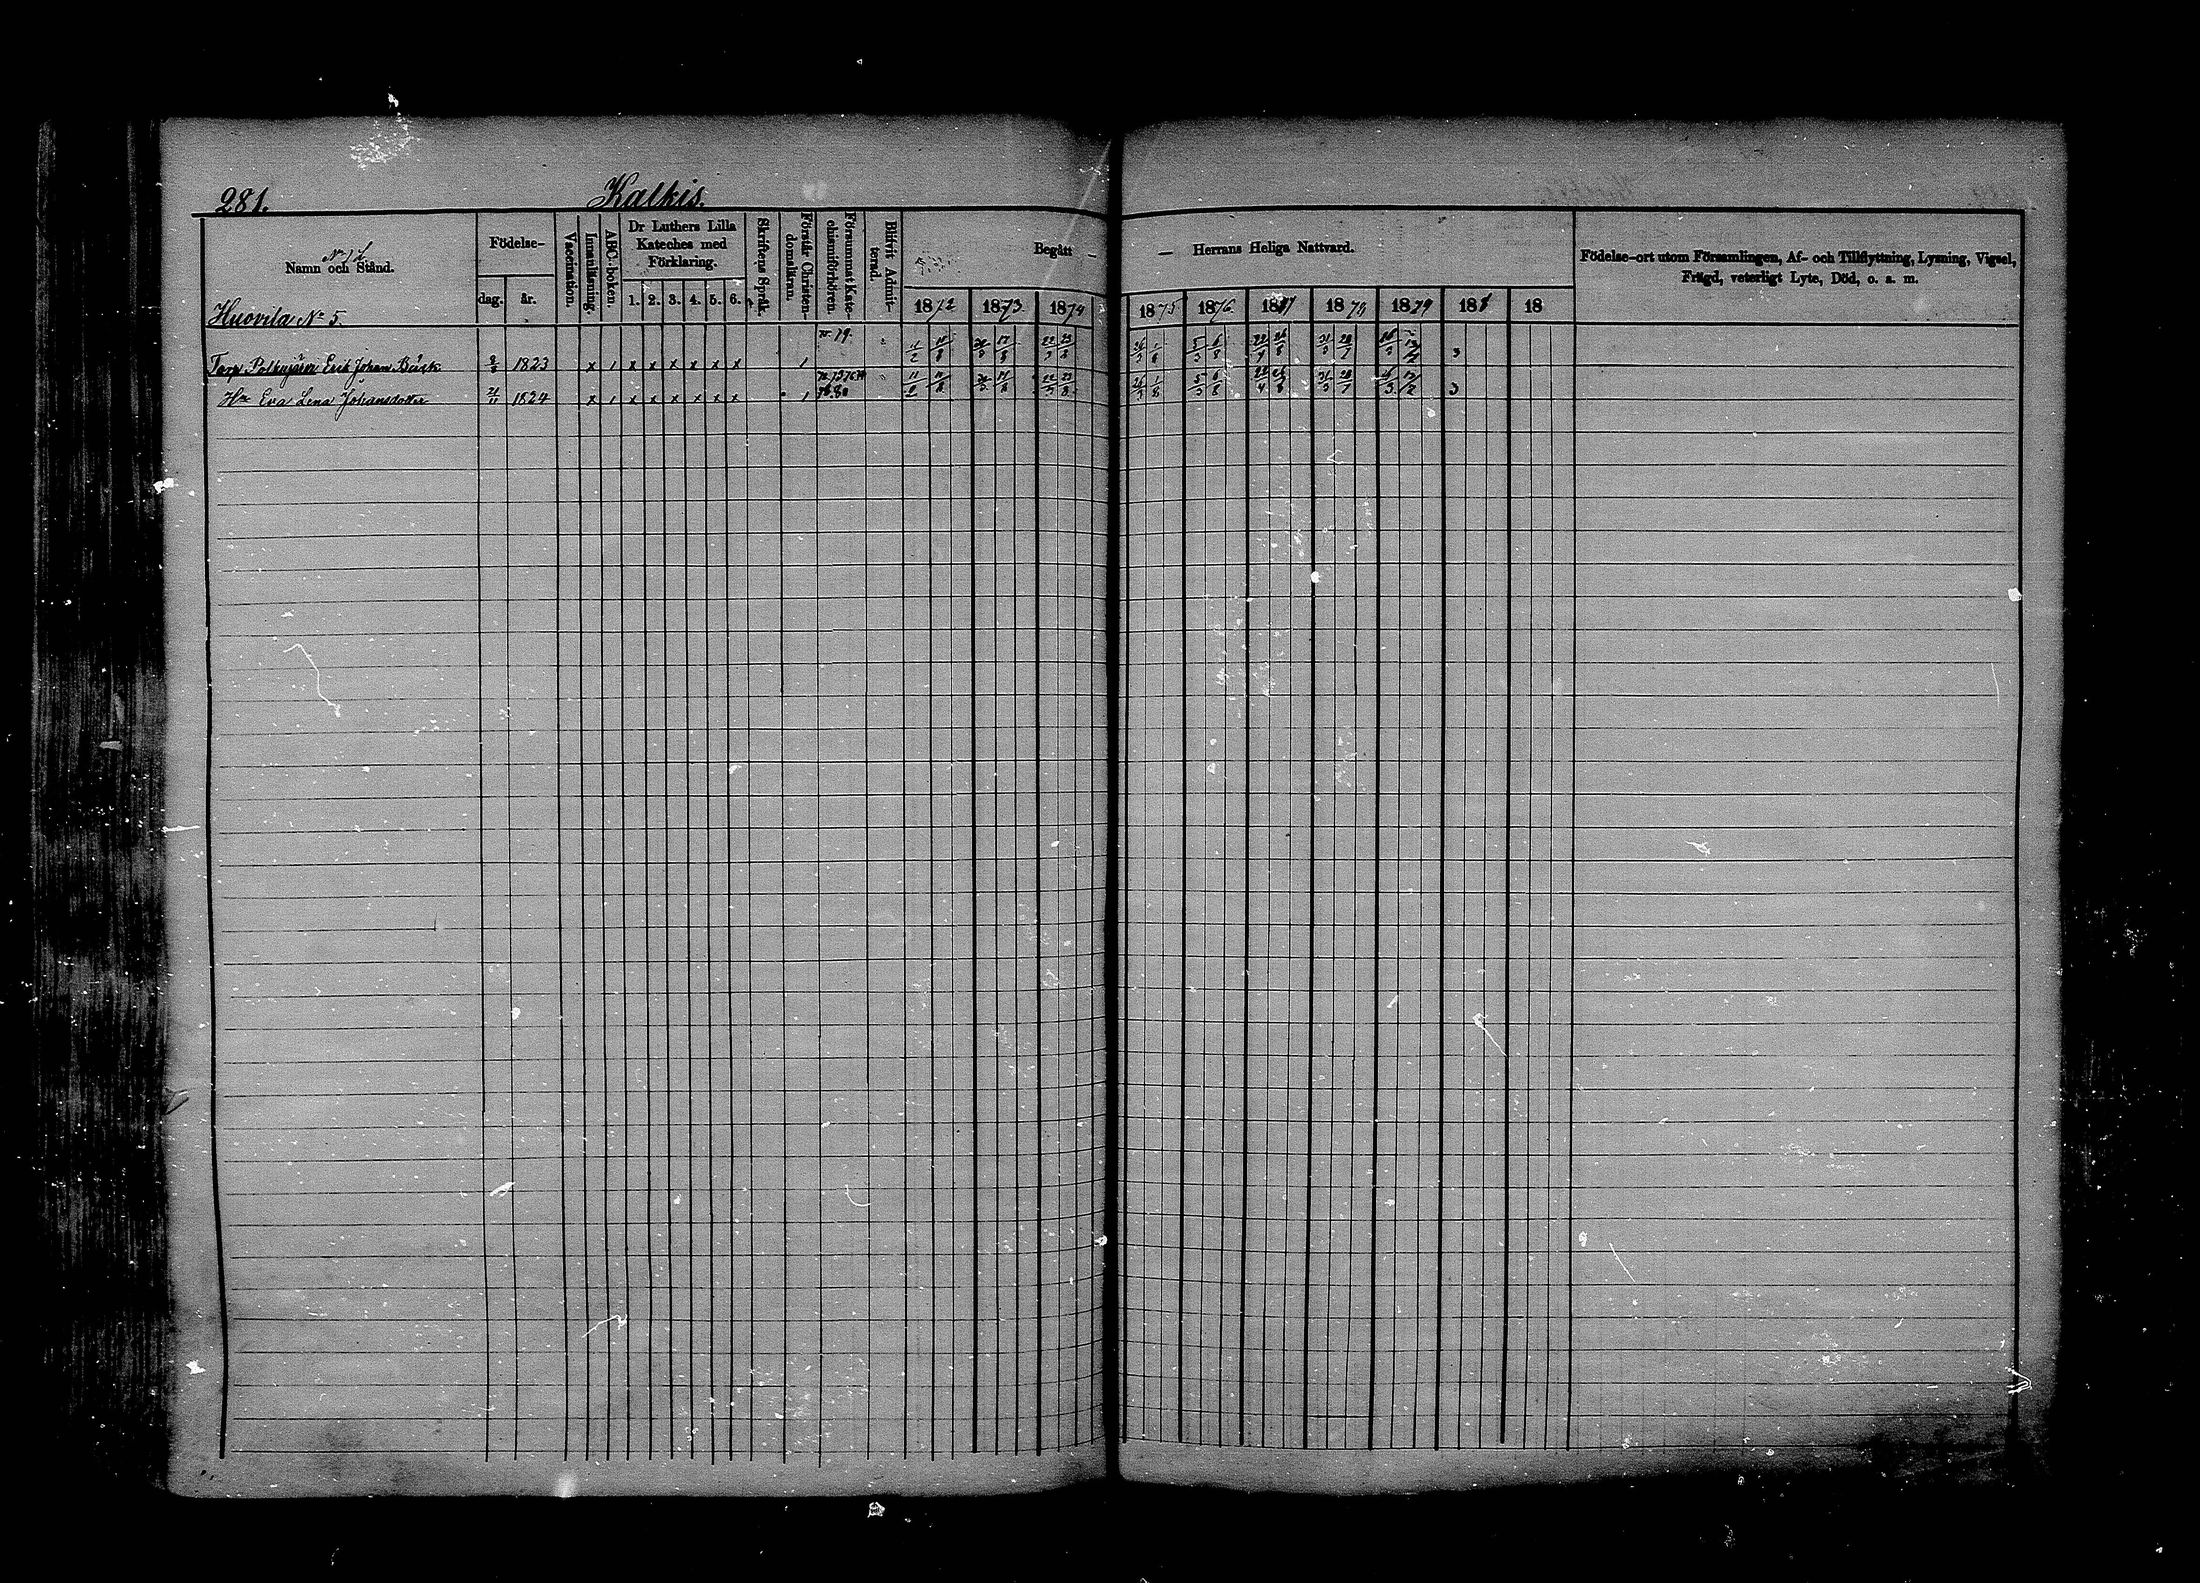 281. Kalkis.
Namn och Stånd.
Födelse-
dag. år.
Vaccination.
Innanläsning.
ABC-boken.
Dr Luthers Lilla
Kateches med
Förklaring.
1. 2. 3. 4. 5. 6.
Skriftens Språk.
Förstår Christen-
domsläran.
Försummat Kate-
chismiförhören.
Blifvit Admit-
terad.
Begått — — Herrans Heliga Nattvard.
1872 1873. 1874 1875 1876. 1877 1878 1879 188 18
Födelse-ort utom Församlingen, Af- och Tillflyttning, Lysning, Vigsel,
Frägd, veterligt Lyte, Död, o. s. m.
Huovila No 5.
Torp. Erik Johan 1823 x 1 x x x x x x 1 79. 11/2 26/3 1/8 5/3 6/8 31/3 28/7 3
Hu Eva Lena Johansdotter 21/11 1824 x 1 x x x x x x 1 11/2 26/3 1/8 5/3 6/8 31/3 28/7 3